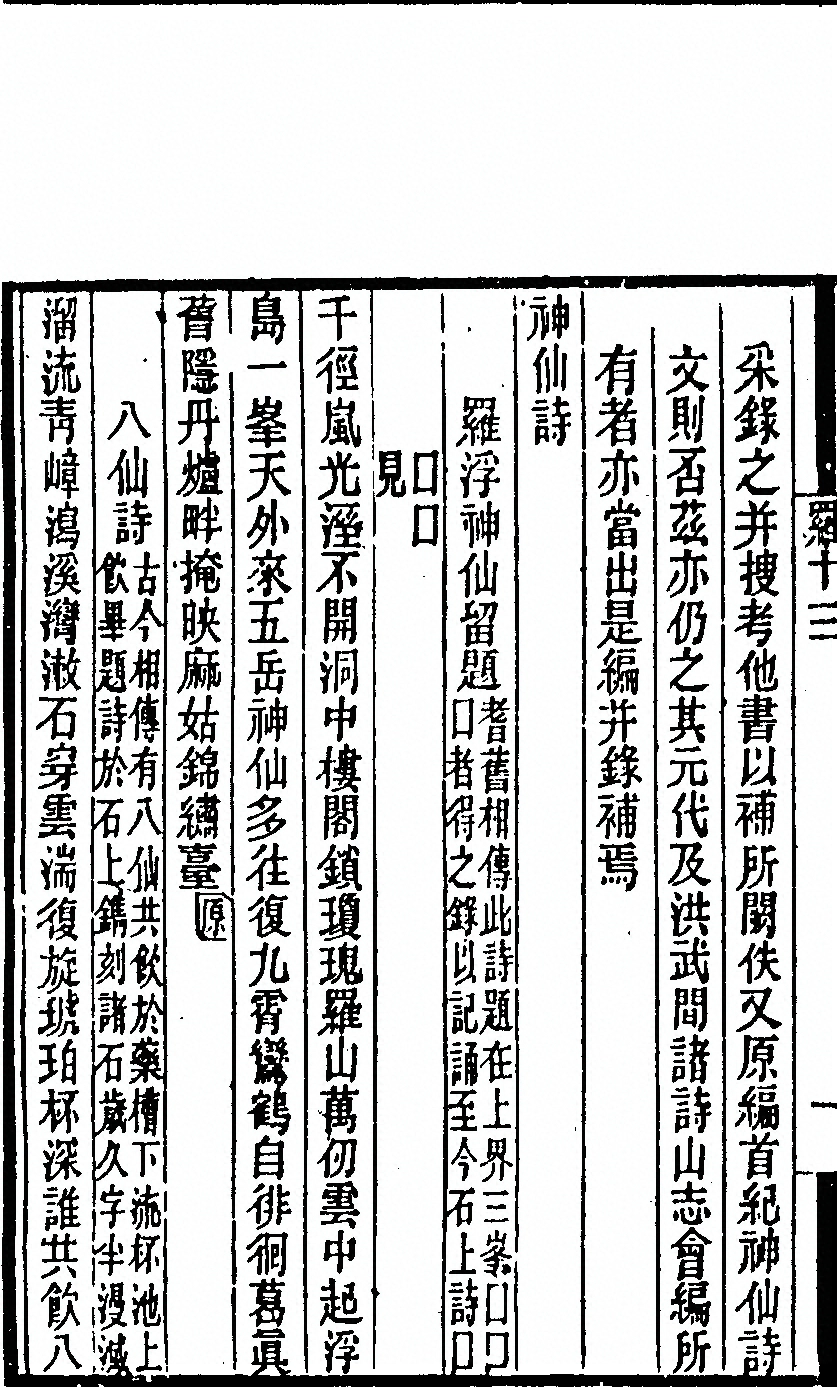 羅十三
一
采錄之并搜考他書以補所闕佚又原編首紀神仙詩
文則否茲亦仍之其元代及洪武間諸詩山志會編所
有者亦當出是編并錄補焉
神仙詩
羅浮神仙留題耆舊相傳此詩題在上界三峯囗囗
囗者得之錄以記誦至今石上詩囗
囗囗
見
千徑嵐光溼不開洞中樓閣鎖瓊瑰羅山萬仞雲中起浮
島一峯天外來五岳神仙多往復九霄鸞鶴自徘徊葛眞
舊隱丹爐畔掩映麻姑錦繡臺原
八仙詩古今相傳有八仙共飲於藥槽下流杯池上
飲畢題詩於石上鐫刻諸石歲久字半漫滅
溜流靑嶂瀉溪灣漱石穿雲湍復旋琥珀杯深誰共飮八